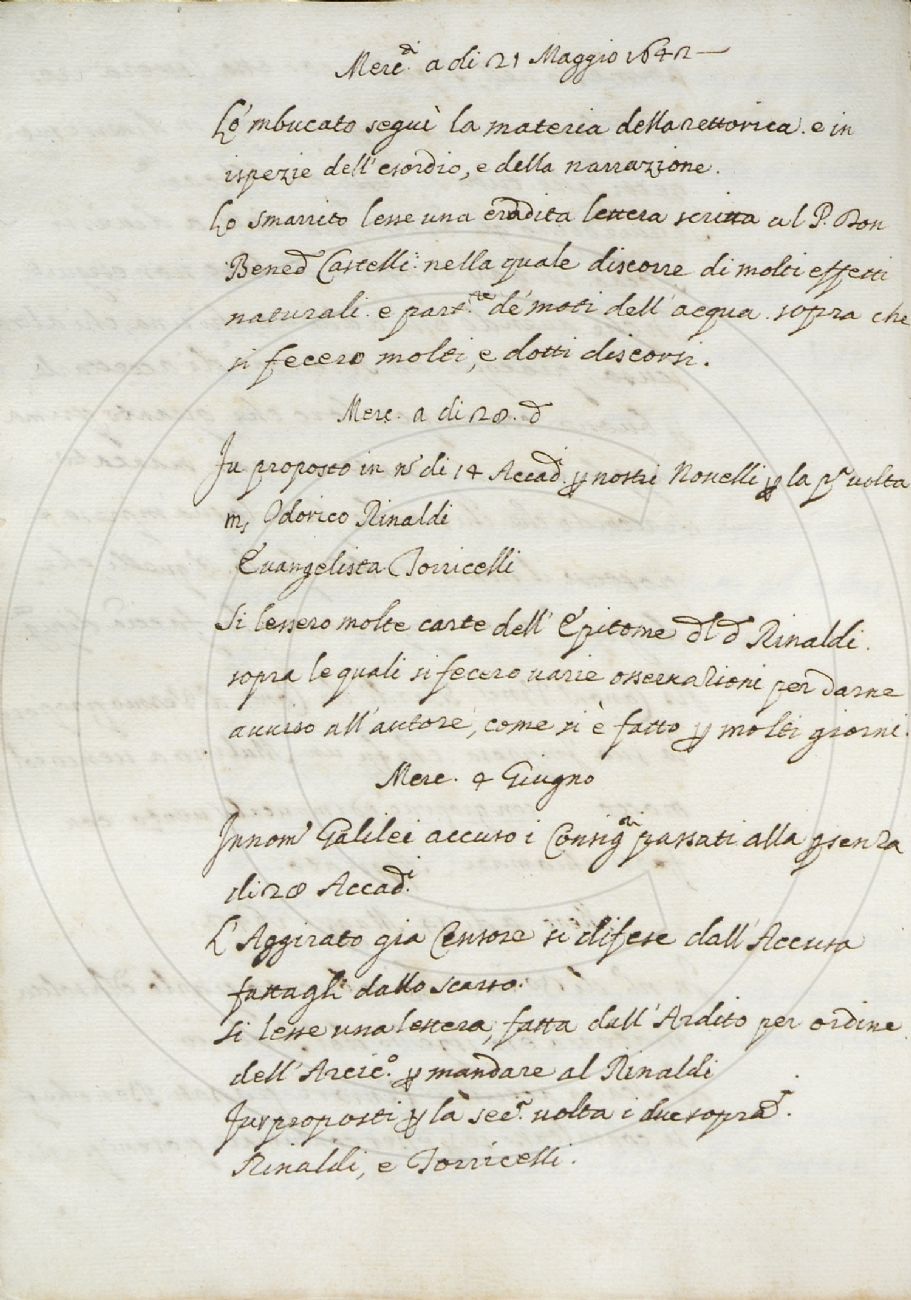 Merc.di a di 21 Maggio 1642
Lo 'mbucato seguì la materia della rettorica. e in
ispezie dell'esordio, e della narrazione.
Lo smarrito lesse una erudita lettera scritta al P. Don
Bened.o Castelli: nella quale discorre di molti effetti
naturali. e part.re de' moti dell'acqua. sopra che
si fecero molti, e dotti discorsi.
Merc. a di 28. d
Fu proposto in n.o di 14 Accad. p nostri Novelli p la p.a volta
m, Odorico Rinaldi
Evangelista Torricelli
Si lessero molte carte dell'Epitome dl d Rinaldi.
sopra le quali si fecero varie osservazioni per darne
avviso all'autore, come si è fatto p molti giorni.
Merc. 4 Giugno
Galilei accusò i Consig.ri passati alla psenza
di 28 Accad.i
L'Aggirato già Censore si difese dall'Accusa
fattagli dallo scarso.
Si lesse una lettera, fatta dall'Ardito per ordine
dell'Arcic.o p mandare al Rinaldi
Fur proposti p la sec.a volta i due sopra.i
Rinaldi, e Torricelli.